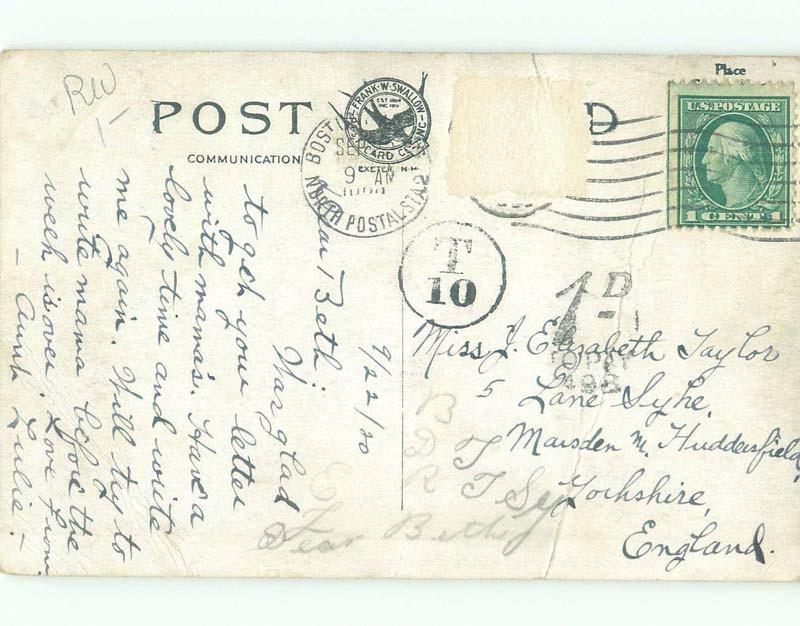 Place
RW
1-
POST
D
COMMUNICATION
FRANK·W·SWALLOW
EST 1904
INC 1911
CARD CO INC
EXETER, N.H.
BOST
SE
9 AM
NORTH POSTAL STA
U.S. POSTAGE
1 CENT 1
T
10
1D
9/22/20
Beth:
Was glad
to get your letter
with mama's. Have a
lovely time and write
me again. Will try to
write mama before the
week is over. Love from
- Aunt Lulie. -
Miss J. Elizabeth Taylor
5 Lane Syke,
Marsden nr. Huddersfield
Yorkshire,
England.
B
D
R
E
Dear Beth